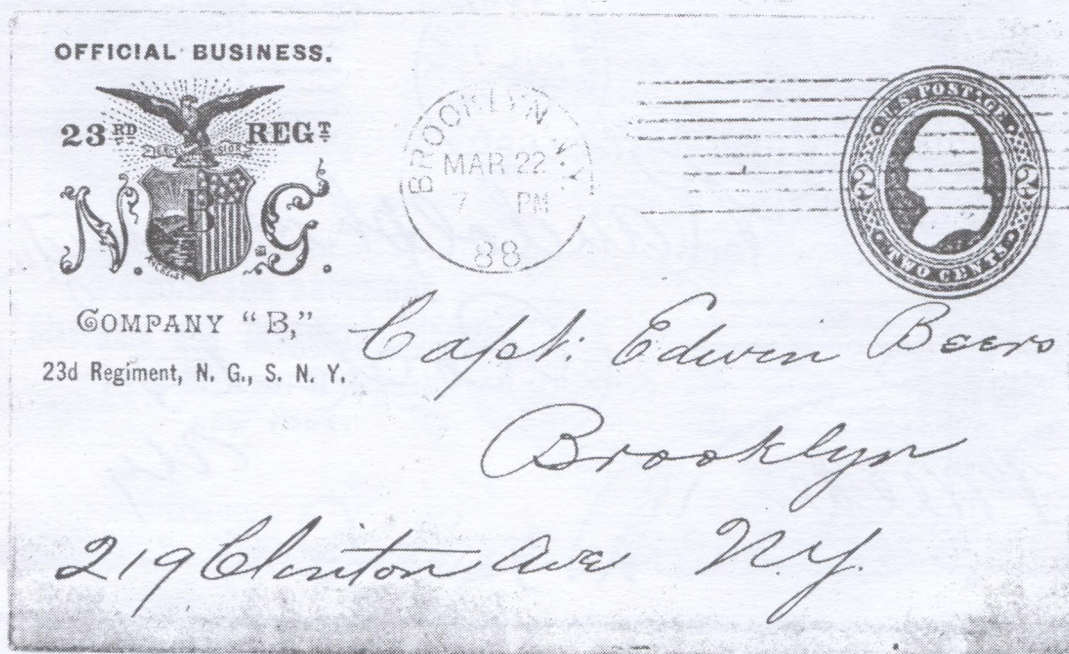 OFFICIAL BUSINESS.
23RD REGT
N. B G.
COMPANY "B,"
23d Regiment, N. G., S. N. Y.
BROOKLYN N.Y.
MAR 22
7 PM
88
U.S. POSTAGE
2 2
TWO CENTS
Capt: Edwin Beers
Brooklyn
219 Clinton Ave N.Y.